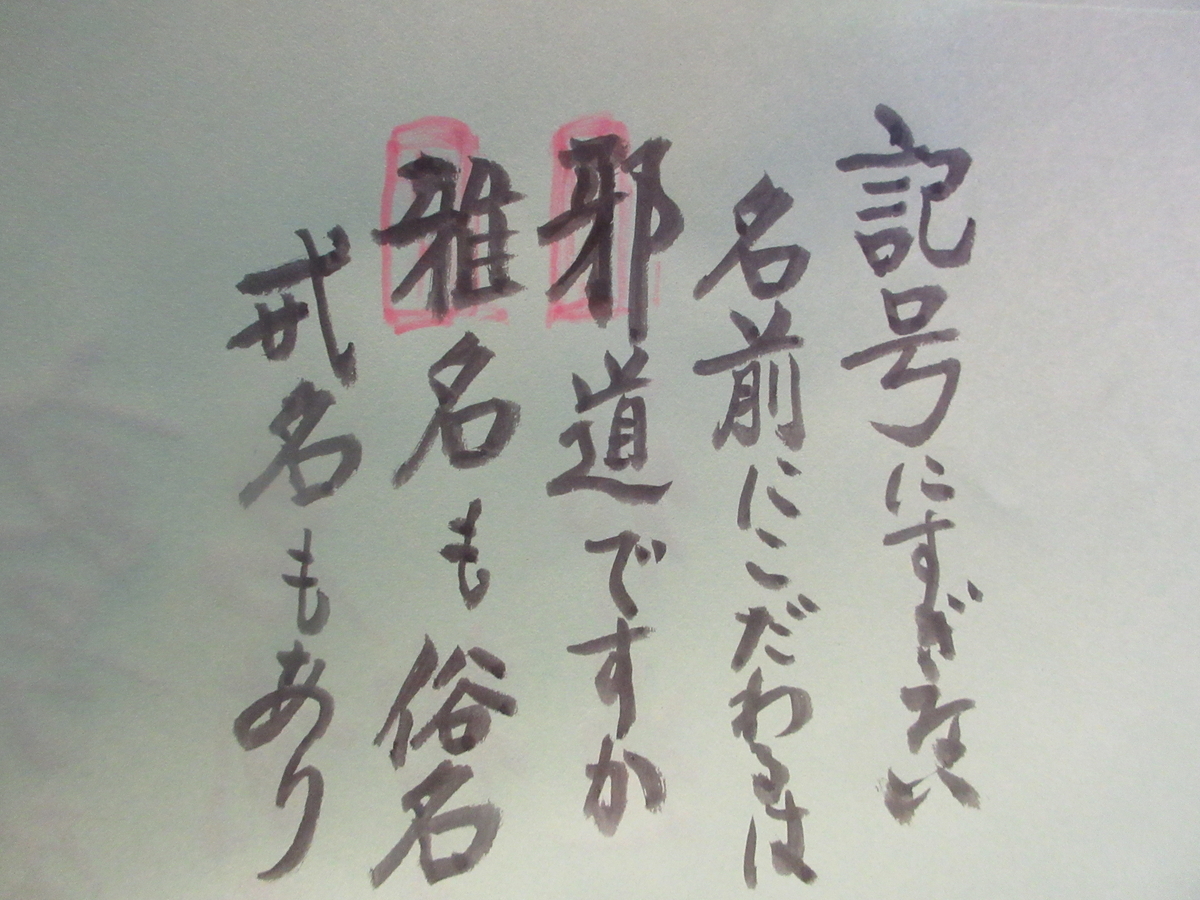 記号にすぎない
名前にこだわるは
邪道ですか
雅名も俗名
戒名もあり